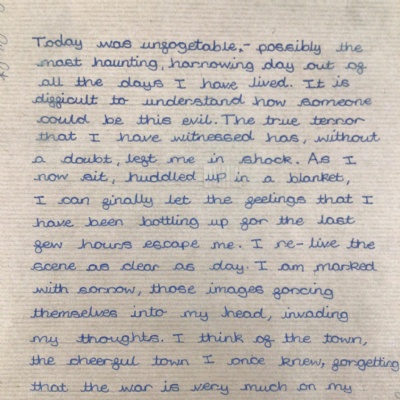 Today was unforgetable,- possibly the
most haunting, harrowing day out of
all the days I have lived. It is
difficult to understand how someone
could be this evil. The true terror
that I have witnessed has, without
a doubt, left me in shock. As I
now sit, huddled up in a blanket,
I can finally let the feelings that I
have been bottling up for the last
few hours escape me. I re-live the
scene as clear as day. I am marked
with sorrow, those images forcing
themselves into my head, invading
my thoughts. I think of the town,
the cheerful town I once knew, forgetting
that the war is very much on my